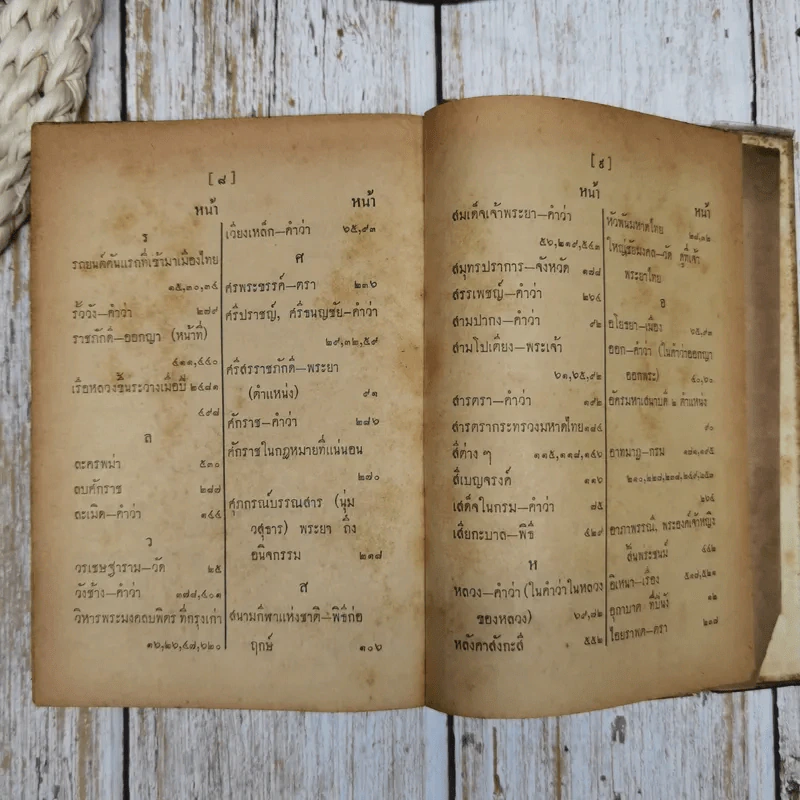 [ ๘ ]
หน้า
ร
รถยนต์คันแรกที่เข้ามาเมืองไทย
๑๕,๓๐,๓๔
รั้ววัง—คำว่า ๒๗๙
ราชภักดี—ออกญา (หน้าที่)
๔๑๑,๔๔๐
เรือหลวงขึ้นระวางเมื่อปี ๒๔๘๑
๔๙๘
ล
ละครพม่า ๕๓๐
ลบศักราช ๒๘๗
ละเมิด—คำว่า ๑๔๔
ว
วรเชษฐาราม—วัด ๒๕
วังช้าง—คำว่า ๓๗๘,๔๐๑
วิหารพระมงคลบพิตร ที่กรุงเก่า
๑๖,๒๖,๔๗,๖๒๐
หน้า
เวียงเหล็ก—คำว่า ๖๕,๙๓
ศ
ศรพระขรรค์—ตรา ๒๓๖
ศรีปราชญ์, ศรีธนญชัย—คำว่า
๒๙,๓๒,๕๙
ศรีสรราชภักดี—พระยา
(ตำแหน่ง) ๙๑
ศักราช—คำว่า ๒๘๖
ศักราชในกฎหมายที่แน่นอน
๒๗๐
ศุภกรณ์บรรณสาร (นุ่ม
วสุธาร) พระยา ถึง
อนิจกรรม ๒๑๗
ส
สนามกีฬาแห่งชาติ—พิธีก่อ
ฤกษ์ ๑๐๖
[ ๙ ]
หน้า
สมเด็จเจ้าพระยา—คำว่า
๕๖,๒๑๙,๕๔๓
สมุทรปราการ—จังหวัด ๑๗๘
สรรเพชญ์—คำว่า ๒๖๔
สามปากง—คำว่า ๙๒
สามโปเตียง—พระเจ้า
๖๑,๖๕,๙๒
สารตรา—คำว่า ๑๙๒
สารตรากระทรวงมหาดไทย ๑๘๔
สีต่าง ๆ ๑๑๕,๑๑๘,๑๔๖
สีเบญจรงค์ ๑๑๖
เสด็จในกรม—คำว่า ๗๕
เสี่ยกะบาล—พิธี ๔๒๙
ห
หลวง—คำว่า (ในคำว่าในหลวง
ของหลวง) ๖๙,๗๒
หลังคาสังกะสี ๕๕๒
หน้า
หัวพันมหาดไทย
๒๘,๓๒
ใหญ่ชัยมงคล—วัด ดูที่เจ้า
พระยาไทย
อ
อโยธยา—เมือง ๖๕,๙๓
ออก—คำว่า (ในคำว่าออกญา
ออกพระ) ๔๐,๖๐
อัครมหาเสนาบดี ๒ ตำแหน่ง
๙๐
อาทมาฏ—กรม ๑๘๑,๑๙๕
๒๑๐,๒๒๘,๒๓๘,๒๔๙,๒๕๓
๒๖๔
อาภาพรรณี, พระองค์เจ้าหญิง
สิ้นพระชนม์ ๔๔๒
อิเหนา—เรื่อง ๕๑๗,๕๒๑
อุกาบาต ที่บนัง ๑๒
ไอยราพต—ตรา ๒๓๗